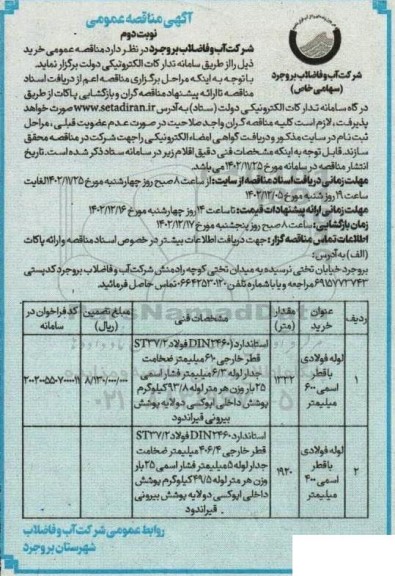 آگهی مناقصه عمومی
نوبت دوم
شرکت آب و فاضلاب بروجرد
(سهامی خاص)
شرکت آب و فاضلاب بروجرد در نظر دارد مناقصه عمومی خرید
ذیل را از طریق سامانه تدارکات الکترونیکی دولت برگزار نماید.
با توجه به اینکه مراحل برگزاری مناقصه اعم از دریافت اسناد
مناقصه تا ارائه پیشنهاد مناقصه گران و بازگشایی پاکات از طریق
درگاه سامانه تدارکات الکترونیکی دولت (ستاد) به آدرس www.setadiran.ir صورت خواهد
پذیرفت، لازم است کلیه مناقصه گران واجد صلاحیت در صورت عدم عضویت قبلی، مراحل
ثبت نام در سایت مذکور و دریافت گواهی امضاء الکترونیکی را جهت شرکت در مناقصه محقق
سازند. قابل توجه به اینکه مشخصات فنی دقیق اقلام زیر در سامانه ستاد ذکر شده است. تاریخ
انتشار مناقصه در سامانه مورخ ۱۴۰۲/۱۱/۲۵ می باشد.
مهلت زمانی دریافت اسناد مناقصه از سایت: از ساعت ۸ صبح روز چهارشنبه مورخ ۱۴۰۲/۱۱/۲۵ لغایت
ساعت ۱۹ روز شنبه مورخ ۱۴۰۲/۱۲/۰۵
مهلت زمانی ارائه پیشنهادات قیمت: تا ساعت ۱۴ روز چهارشنبه مورخ ۱۴۰۲/۱۲/۱۶
زمان بازگشایی: ساعت ۸ صبح روز پنجشنبه مورخ ۱۴۰۲/۱۲/۱۷
اطلاعات تماس مناقصه گزار: جهت دریافت اطلاعات بیشتر در خصوص اسناد مناقصه و ارائه پاکات
(الف) به آدرس:
بروجرد خیابان تختی نرسیده به میدان تختی کوچه رادمنش شرکت آب و فاضلاب بروجرد کدپستی
۶۹۱۵۷۷۳۷۴۳ مراجعه و یا با شماره تلفن ۰۶۶۴۲۵۳۰۱۲۰ تماس حاصل فرمائید.
ردیف | عنوان خرید | مقدار (متر) | مشخصات فنی | مبلغ تضمین (ریال) | کد فراخوان در سامانه
۱ | لوله فولادی با قطر اسمی ۶۰۰ میلیمتر | ۱۳۳۲ | استاندارد (DIN۲۴۶۰ فولاد ST۳۷/۲ قطر خارجی ۶۱۰ میلیمتر ضخامت جدار لوله ۶/۳ میلیمتر فشار اسمی ۲۵ بار وزن هر متر لوله ۹۳/۸ کیلوگرم پوشش داخلی اپوکسی دولایه پوشش بیرونی قیراندود | ۸/۱۲۰/۰۰۰/۰۰۰ | ۲۰۰۲۰۰۵۵۰۷۰۰۰۰۱۱
۲ | لوله فولادی با قطر اسمی ۴۰۰ میلیمتر | ۱۹۲۰ | استاندارد DIN۲۴۶۰ فولاد ST۳۷/۲ قطر خارجی ۴۰۶/۴ میلیمتر ضخامت جدار لوله ۵ میلیمتر فشار اسمی ۲۵ بار وزن هر متر لوله ۴۹/۵ کیلوگرم پوشش داخلی اپوکسی دولایه پوشش بیرونی قیراندود
روابط عمومی شرکت آب و فاضلاب
شهرستان بروجرد